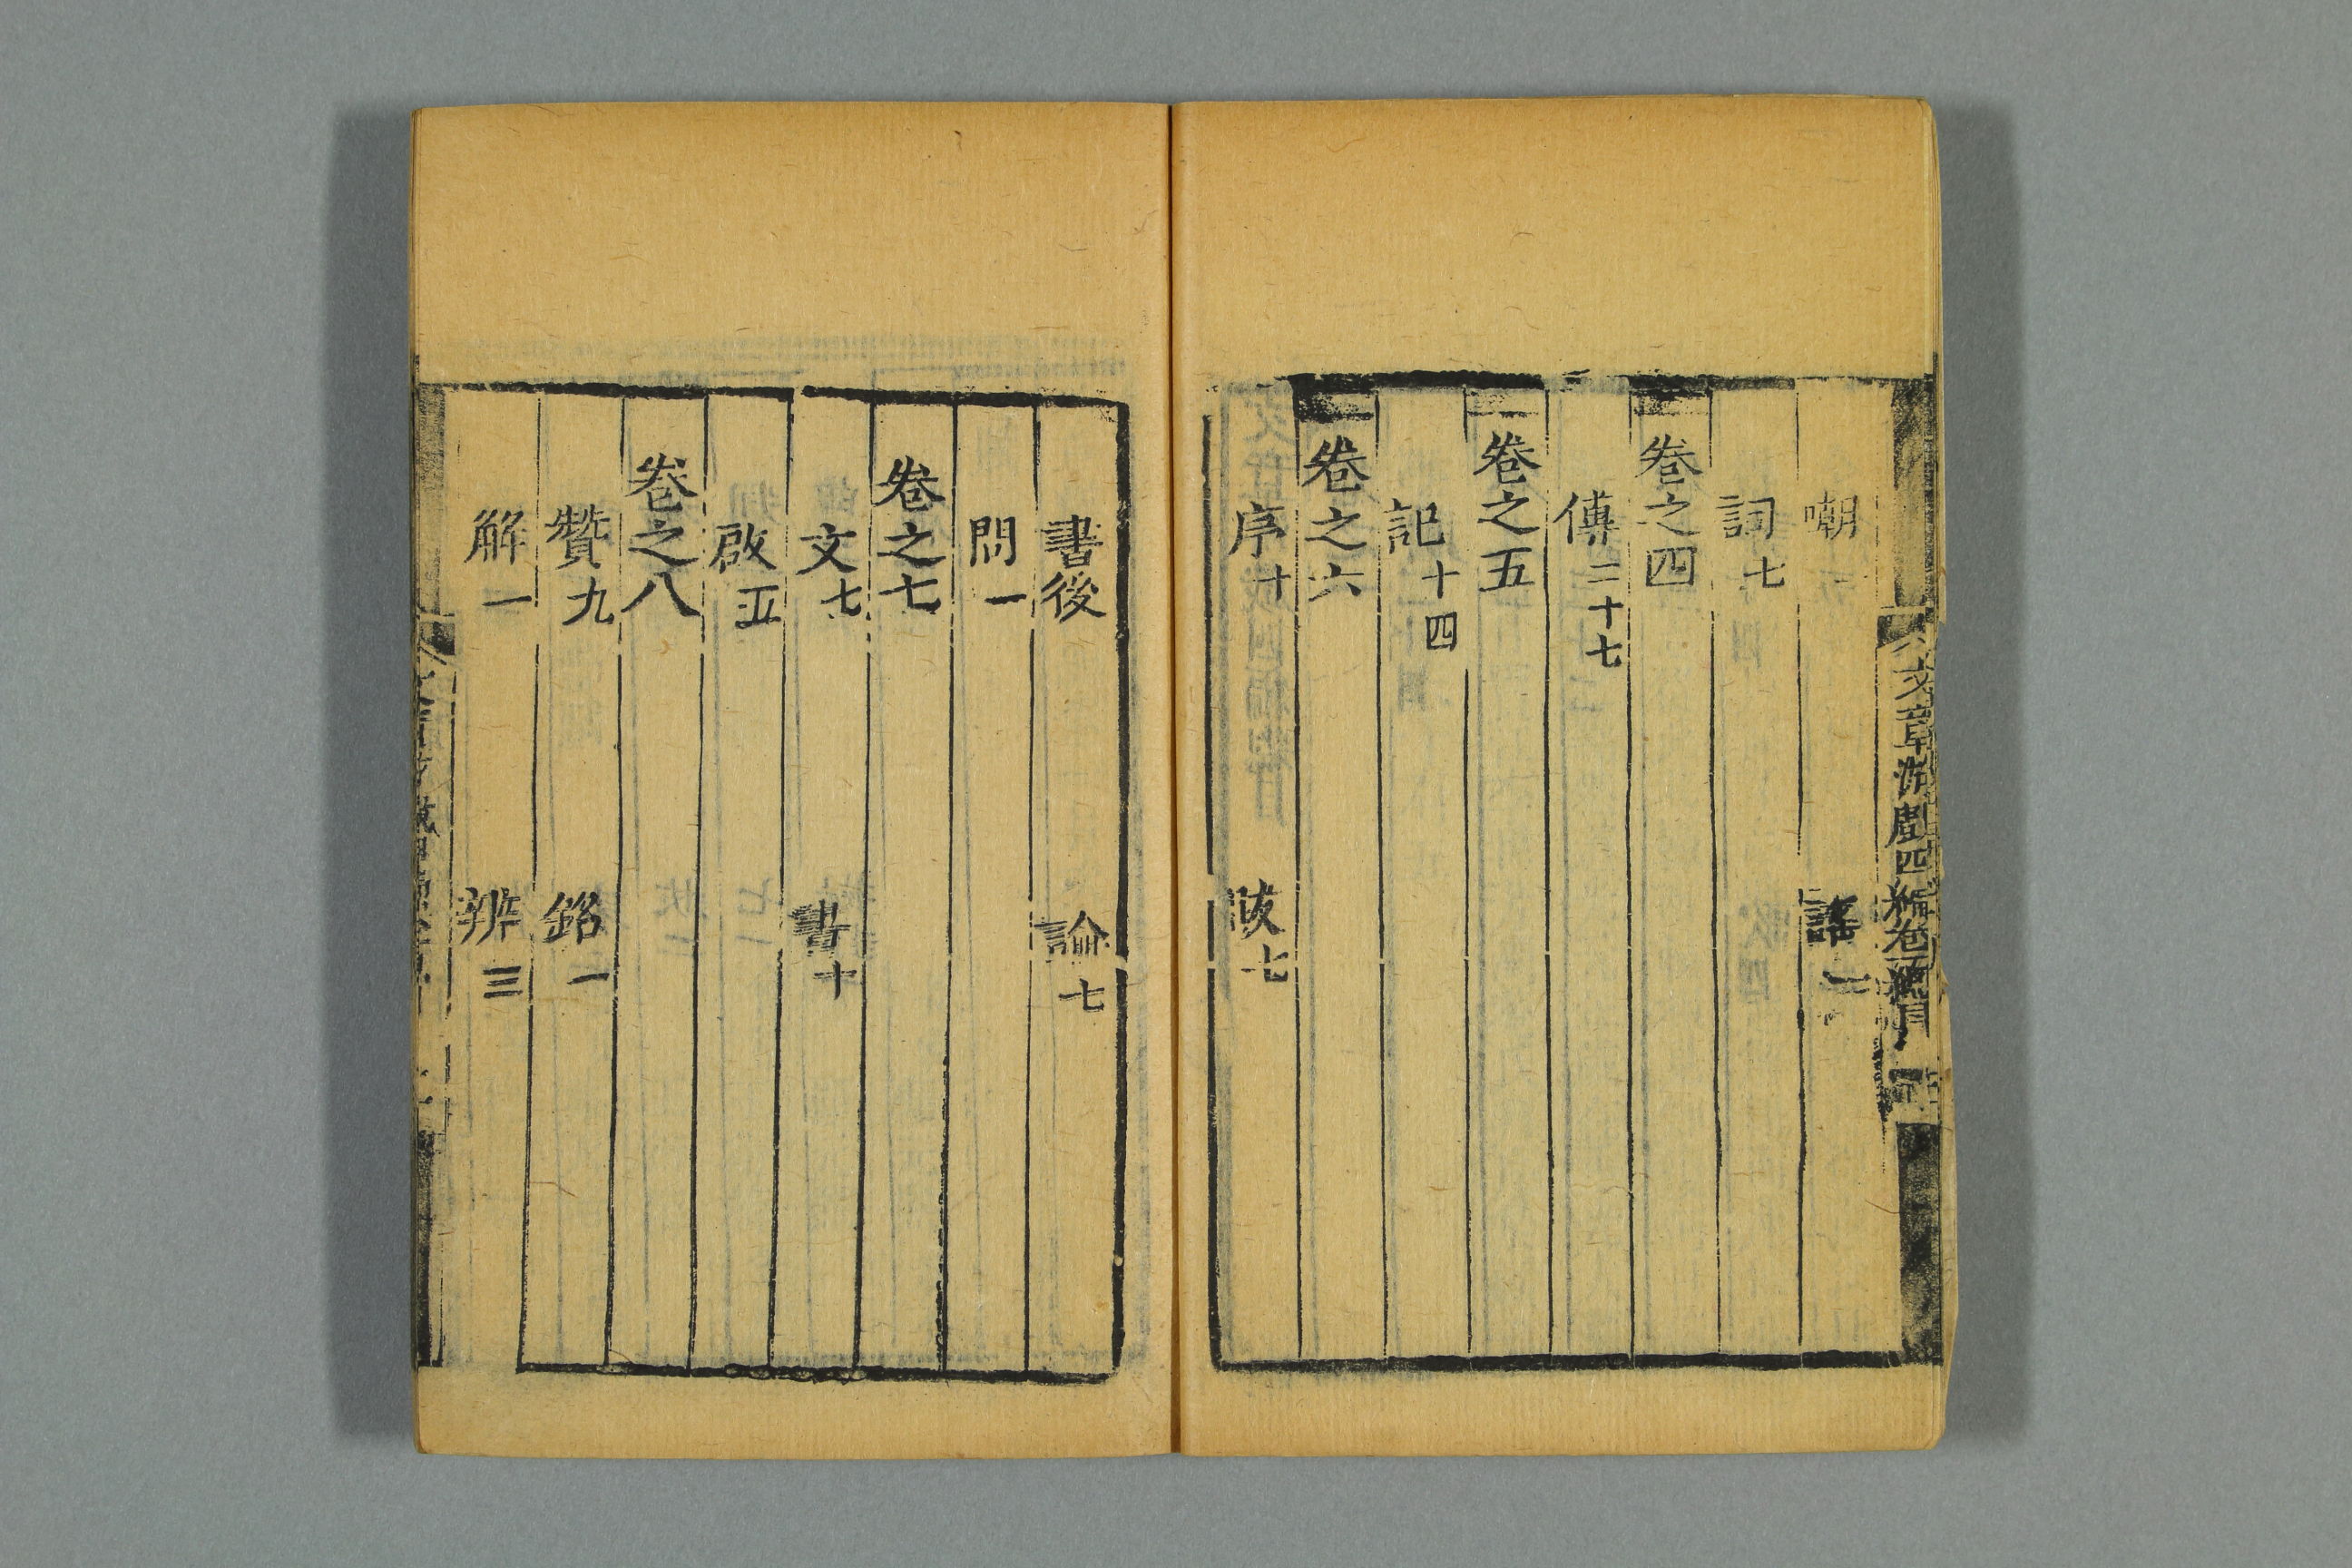 嘲 謠 一
詞 七
卷之四
傳 二十七
卷之五
記 十四
卷之六
序 十 跋 七
書後 論 七
問 一
卷之七
文 七 書 十
啟 五
卷之八
贊 九 銘 一
解 一 辨 三
文章游戲四編卷總目